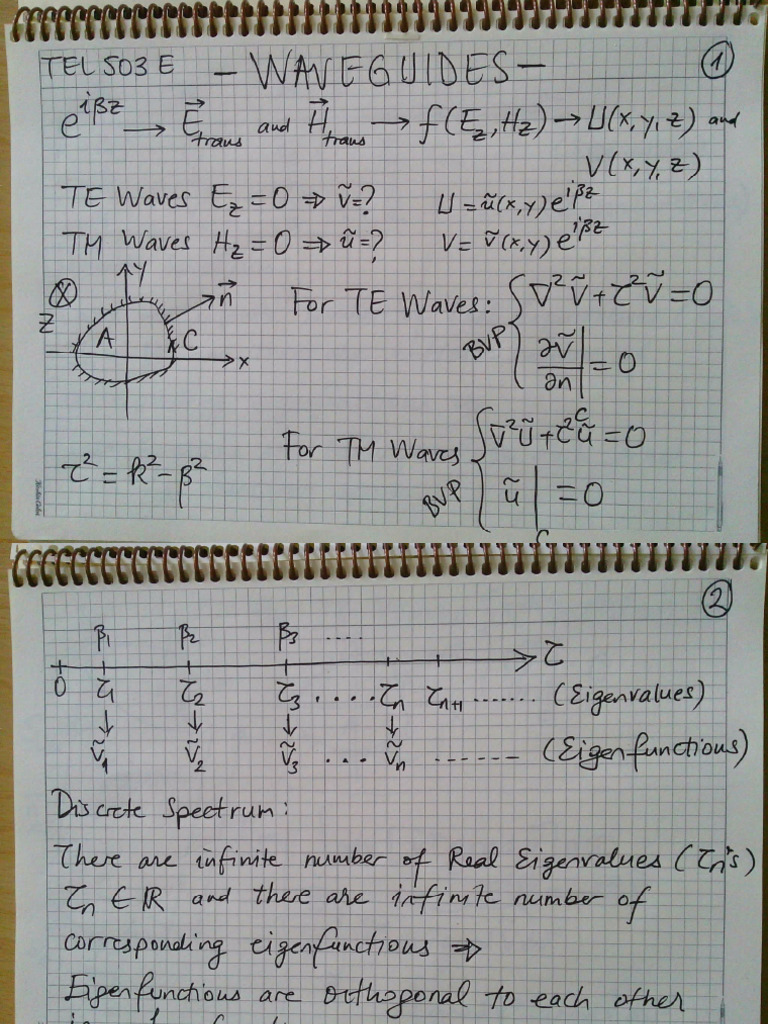 TEL 503 E - WAVEGUIDES - 1
e^{iβz} → E⃗_trans and H⃗_trans → f(E_z, H_z) → U(x, y, z) and
V(x, y, z)
TE Waves E_z = 0 ⇒ ṽ = ? U = ũ(x,y) e^{iβz}
TM Waves H_z = 0 ⇒ ũ = ? V = ṽ(x,y) e^{iβz}
y
X n⃗ For TE Waves: { ∇²ṽ + τ²ṽ = 0
Z
A C x BVP ∂ṽ/∂n |_C = 0
For TM Waves { ∇²ũ + τ²ũ = 0
τ² = k² - β² BVP ũ |_C = 0
2
β₁ β₂ β₃ ....
τ
0 τ₁ τ₂ τ₃ .... τ_n τ_{n+1} ....... (Eigenvalues)
↓ ↓ ↓ ↓
ṽ₁ ṽ₂ ṽ₃ ... ṽ_n ------- (Eigenfunctions)
Discrete Spectrum:
There are infinite number of Real Eigenvalues (τ_n's)
τ_n ∈ ℝ and there are infinite number of
corresponding eigenfunctions ⇒
Eigenfunctions are orthogonal to each other